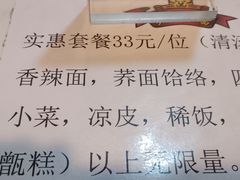 实惠套餐33元/位（清
香辣面，荞面饸饹，
小菜，凉皮，稀饭，
甑糕）以上无限量。